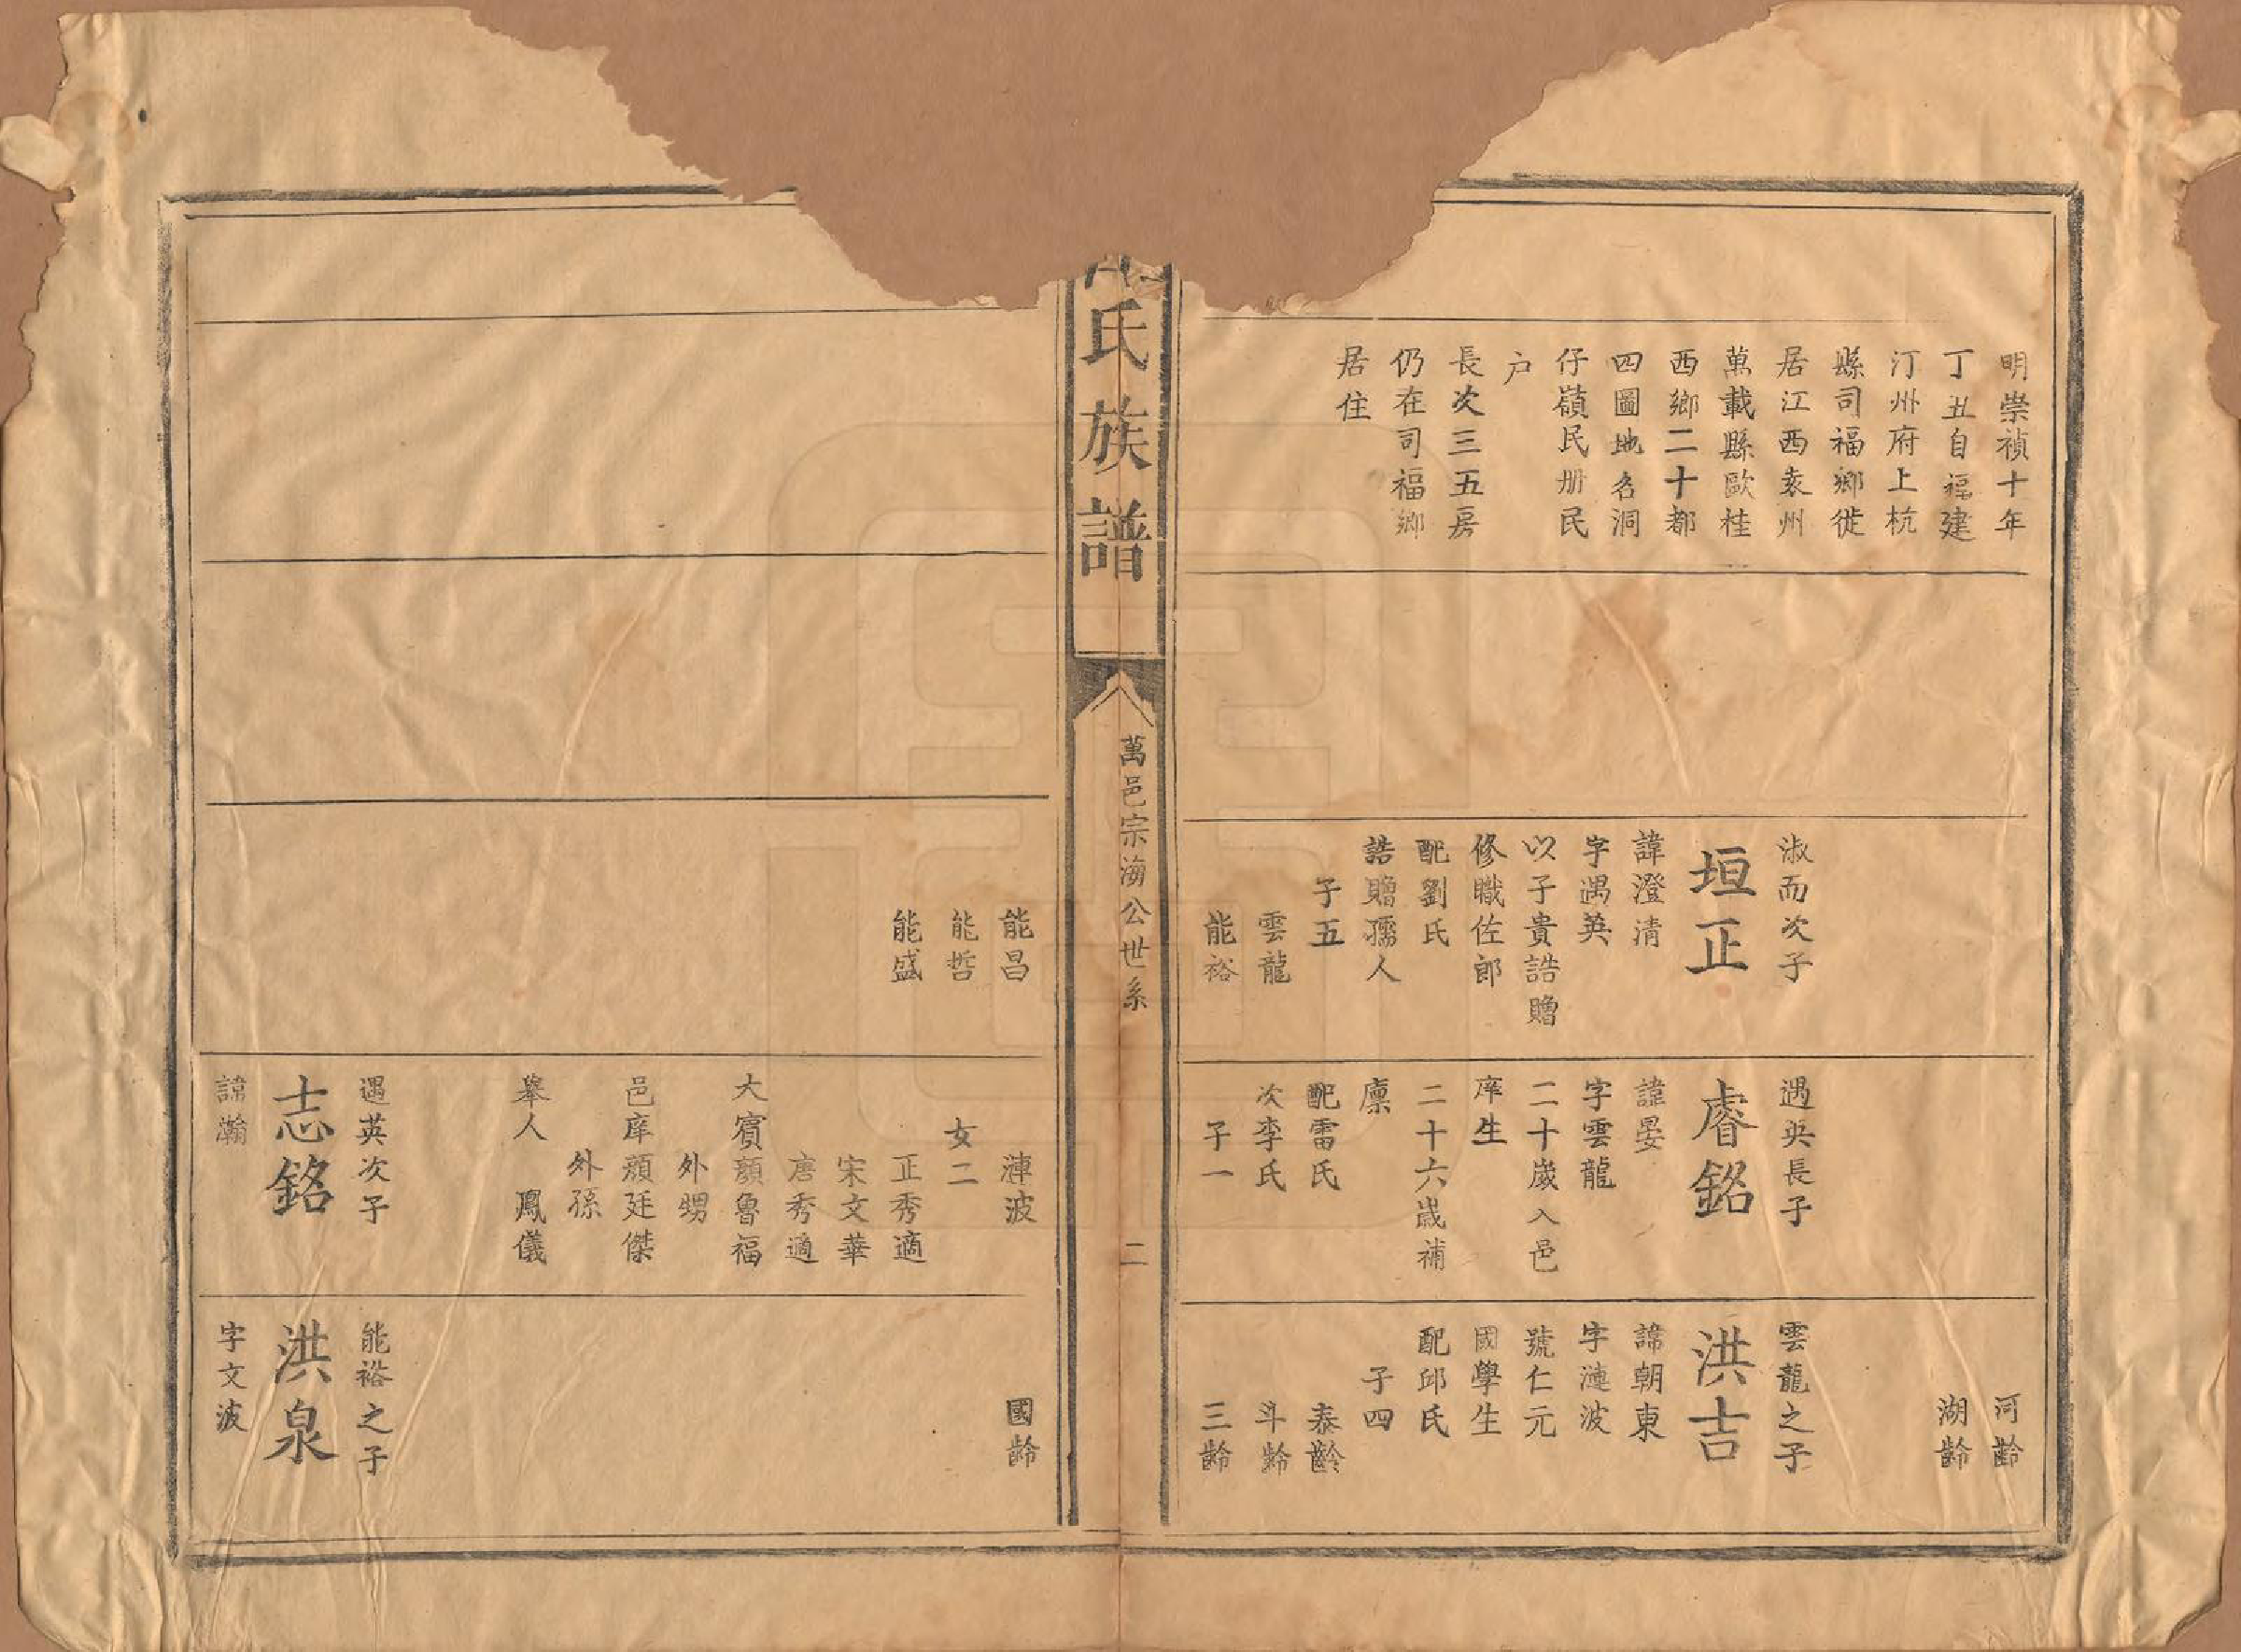 明崇禎十年
丁丑自福建
汀州府上杭
縣司福鄉徙
居江西袁州
萬載縣歐桂
西鄉二十都
四圖地名洞
仔嶺民册民
户
長次三五房
仍在司福鄉
居住
淑而次子
垣正
諱澄清
字遇英
以子貴誥贈
修職佐郎
配劉氏
誥贈孺人
子五
雲龍
能裕
遇英長子
睿銘
諱晏
字雲龍
二十歲入邑
庠生
二十六歲補
廩
配雷氏
次李氏
子一
河齡
湖齡
雲龍之子
洪吉
諱朝東
字漣波
號仁元
國學生
配邱氏
子四
泰齡
斗齡
三齡
氏族譜
萬邑宗海公世系
二
能昌
能哲
能盛
漣波
女二
正秀適
宋文華
唐秀適
大賓顏魯福
外甥
邑庠顏廷傑
外孫
舉人 鳳儀
遇英次子
志銘
諱瀚
國齡
能裕之子
洪泉
字文波